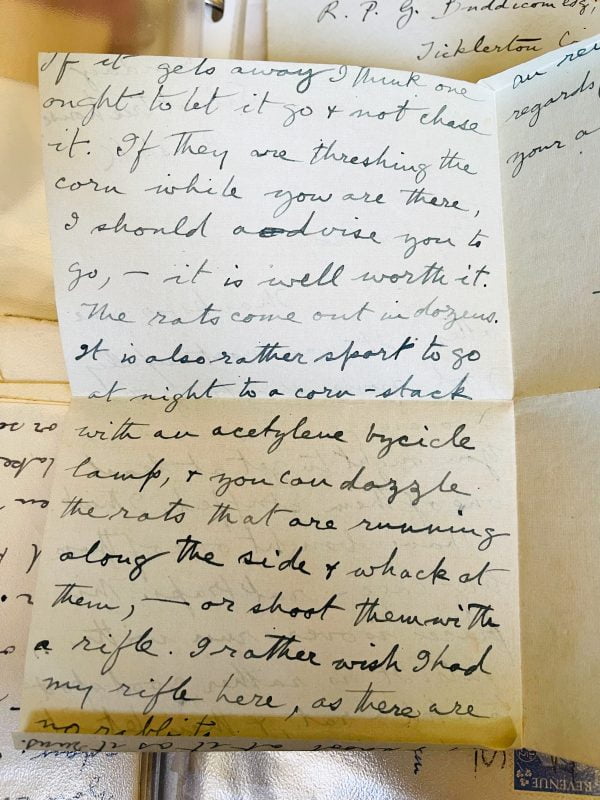 R. P. G. Buddicom Esq;
Ticklerton
regards
your a
If it gets away I think one
ought to let it go & not chase
it. If they are threshing the
corn while you are there,
I should advise you to
go, — it is well worth it.
The rats come out in dozens.
It is also rather sport to go
at night to a corn-stack
with an acetylene bycicle
lamp, & you can dazzle
the rats that are running
along the side & whack at
them, — or shoot them with
a rifle. I rather wish I had
my rifle here, as there are
no rabbits
REVENUE